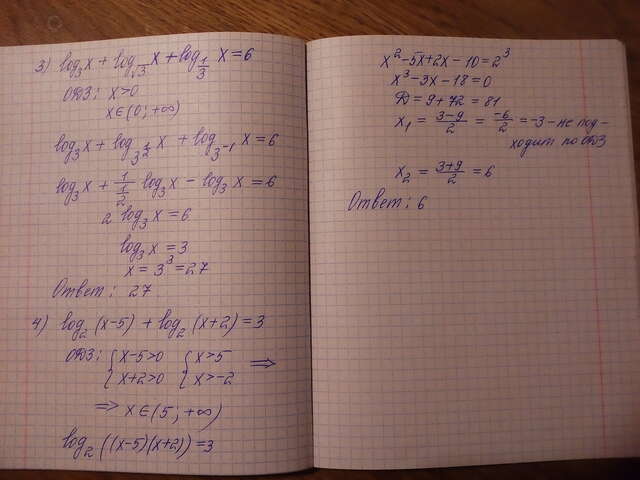 3) log₃x + log_√3 x + log_{1/3} x = 6
ОДЗ: x>0
x∈(0; +∞)
log₃x + log_{3^{1/2}} x + log_{3^{-1}} x = 6
log₃x + 1/(1/2) log₃x − log₃x = 6
2 log₃x = 6
log₃x = 3
x = 3³ = 27
Ответ: 27.
4) log₂(x-5) + log₂(x+2) = 3
ОДЗ: { x-5>0 { x>5 ⇒
{ x+2>0 { x>-2
⇒ x∈(5; +∞)
log₂((x-5)(x+2)) = 3
x² - 5x + 2x - 10 = 2³
x² - 3x - 18 = 0
D = 9 + 72 = 81
x₁ = (3-9)/2 = -6/2 = -3 - не под-
ходит по ОДЗ
x₂ = (3+9)/2 = 6
Ответ: 6